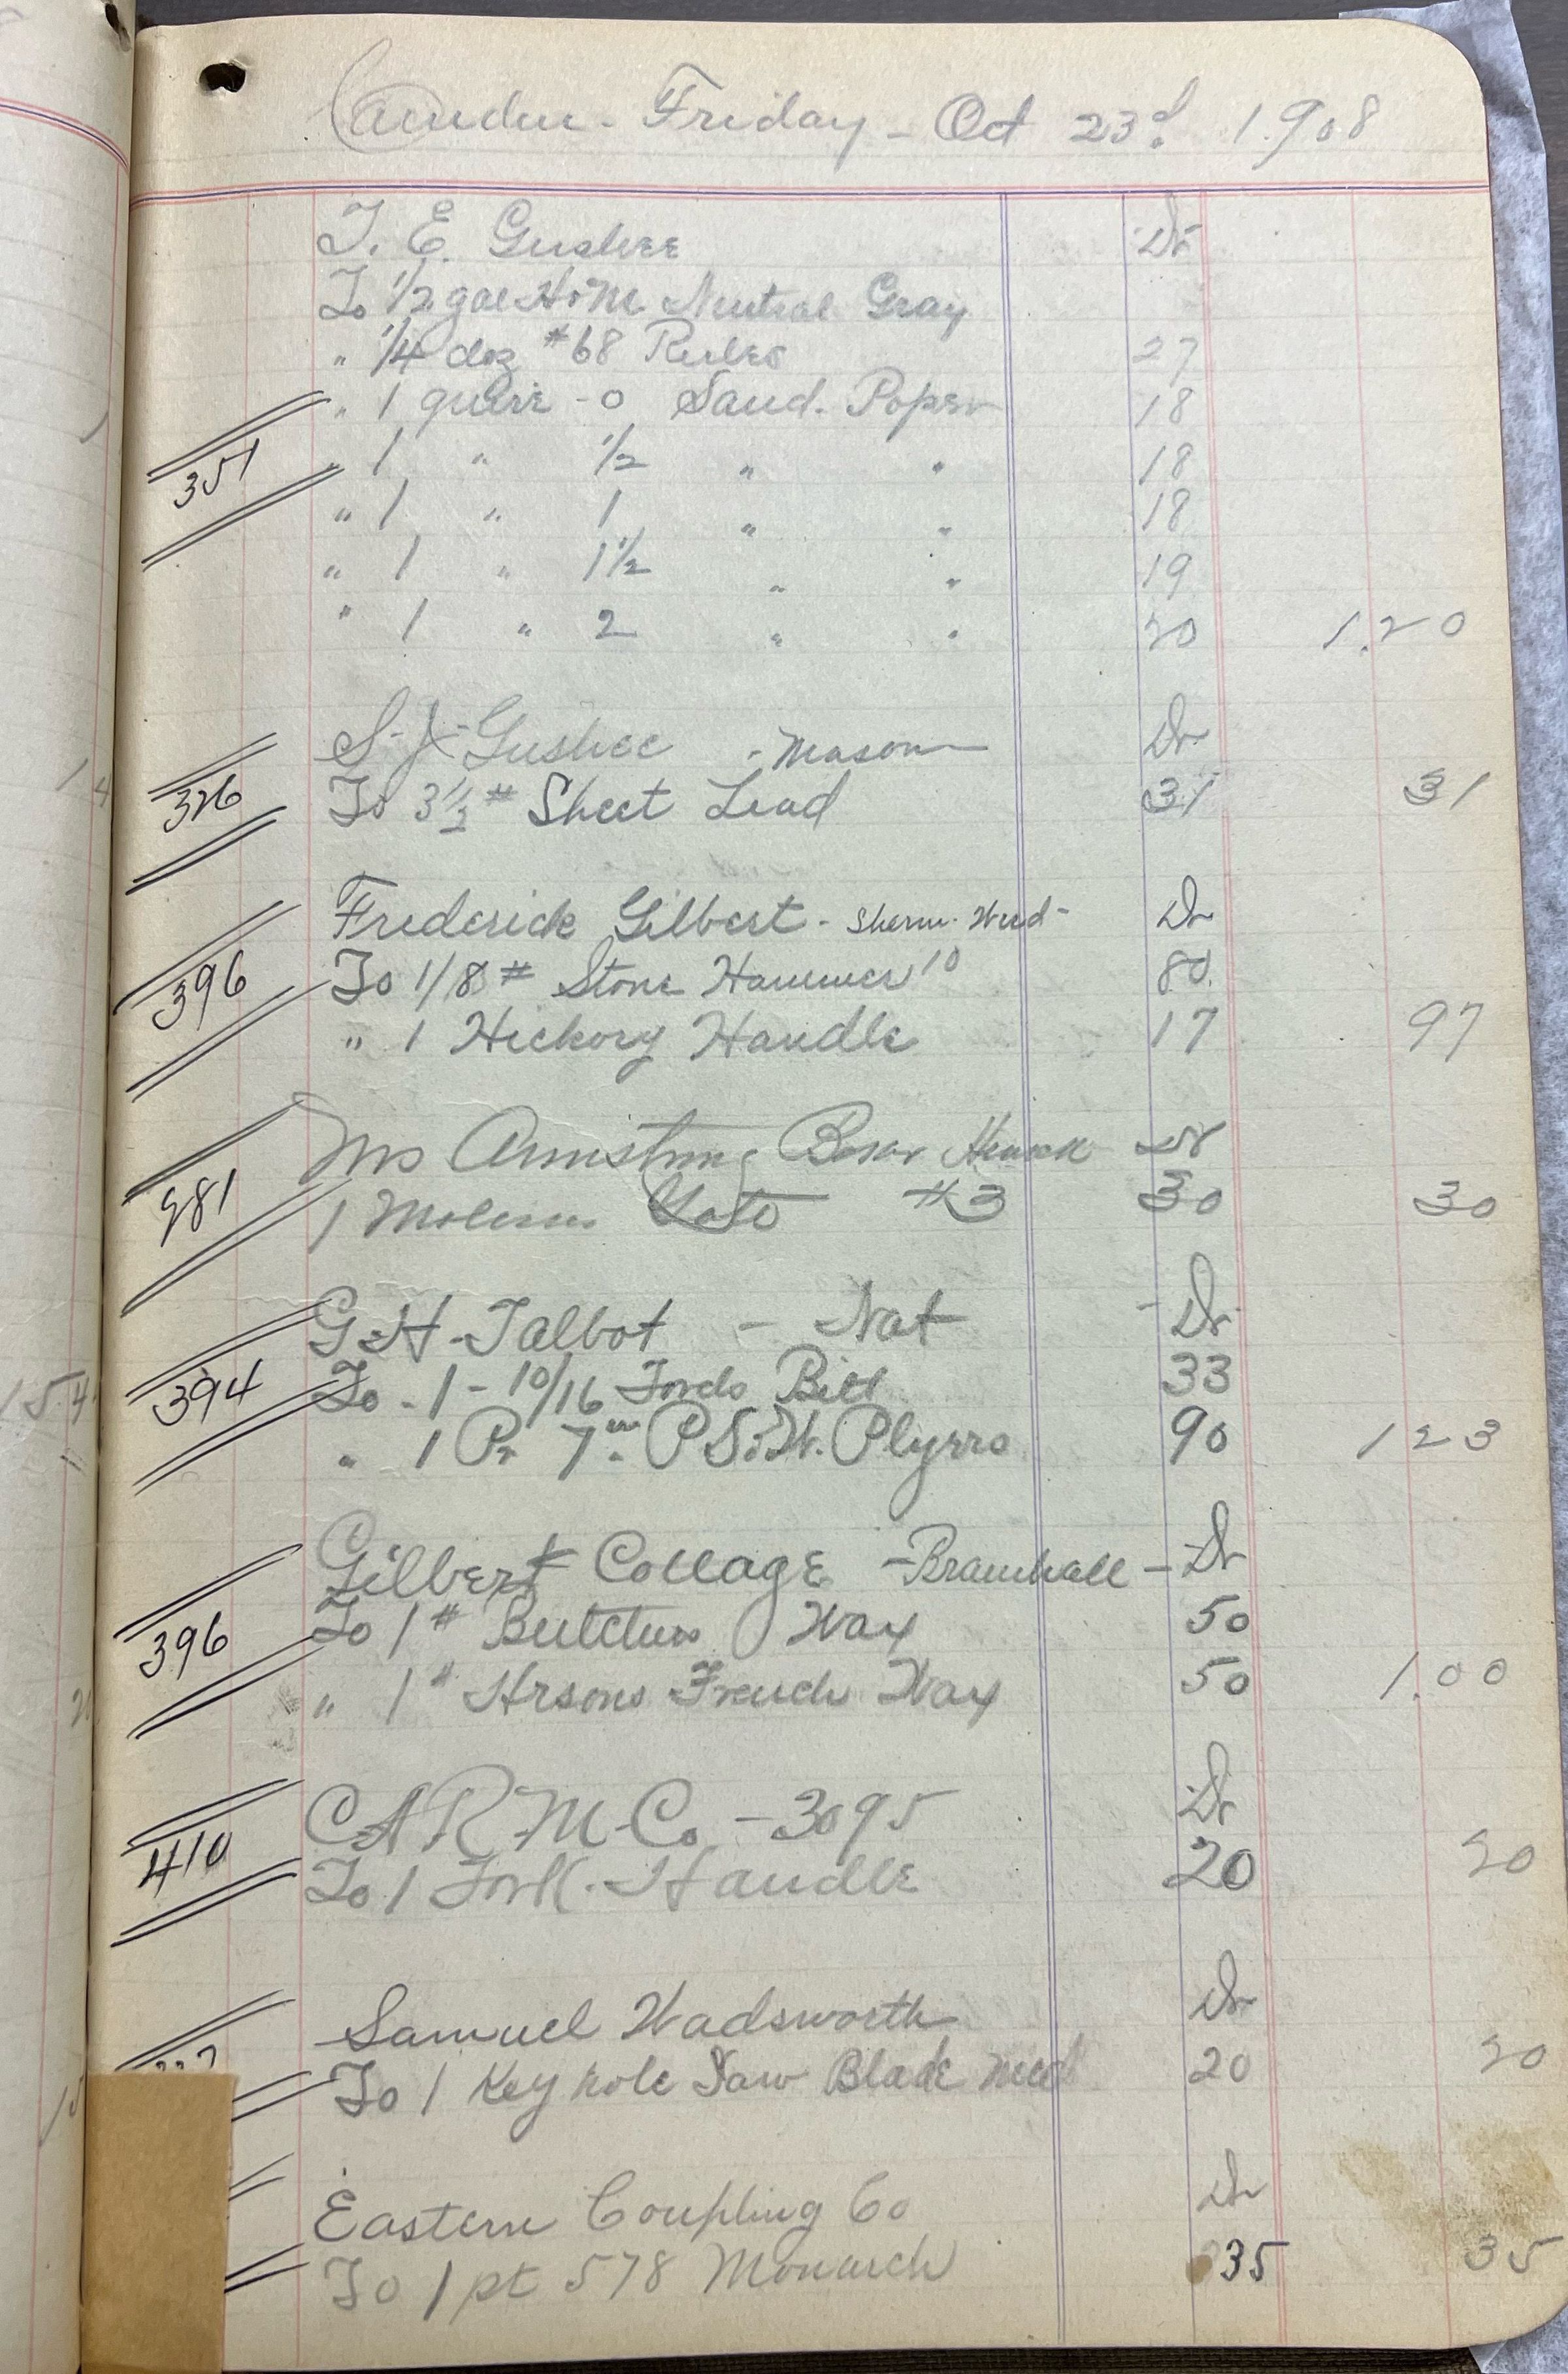 Camden - Friday - Oct 23d 1908
T. E. Gushee Dr
To 1/2 gal H&M Neutral Gray
" 1/4 doz #68 Rules 27
" 1 quire - 0 Sand. Paper 18
351 " 1 " 1/2 " " 18
" 1 " 1 " " 18
" 1 " 1 1/2 " " 19
" 1 " 2 " " 20 1.20
S. J. Gushee - Mason Dr
326 To 3 1/2 # Sheet Lead 31 31
Frederick Gilbert - Sherm. Weed - Dr
396 To 1/8 # Stone Hammer 10 80
" 1 Hickory Handle 17 97
Mrs Armstrong Dr
481 1 Molasses Gate #3 30 30
G. H. Talbot - Nat - Dr
394 To - 1 - 10/16 Fords Bitt 33
" 1 Pr 7 in P. S. & W. Plyers 90 123
Gilbert Cottage - Bramhall - Dr
396 To 1 # Butchers Wax 50
" 1 " French Wax 50 1.00
C A R M Co - 3095 Dr
410 To 1 Fork. Handle 20 20
Samuel Wadsworth Dr
To 1 Key hole Saw Blade 20 20
Eastern Coupling Co Dr
To 1 pt 578 Monarch 35 35